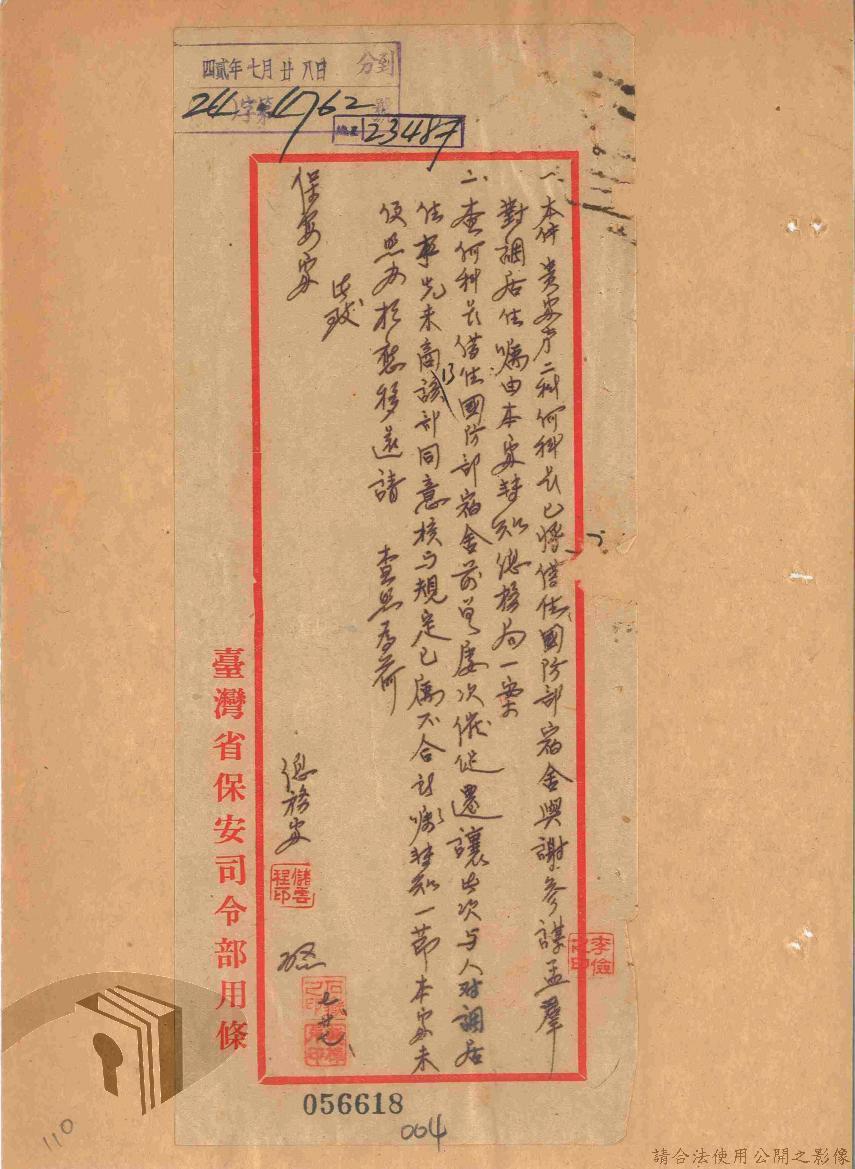 四貳年七月廿八日
到分
字第 號
24 1762
總 23487
一、本件貴處第二科何科長已將借住國防部宿舍與謝參謀孟羣
對調居住囑由本處轉知總務局一案
二、查何科長借住國防部宿舍前曾屢次催促還讓此次与人对調居
住事先未商該部同意核与規定已屬不合所囑轉知一節本處未
便照办相應移還請 查照為荷
此致
保安處
總務處
儲雲程印
七、廿七
李儉之印
臺灣省保安司令部用條
056618
004
110
請合法使用公開之影像